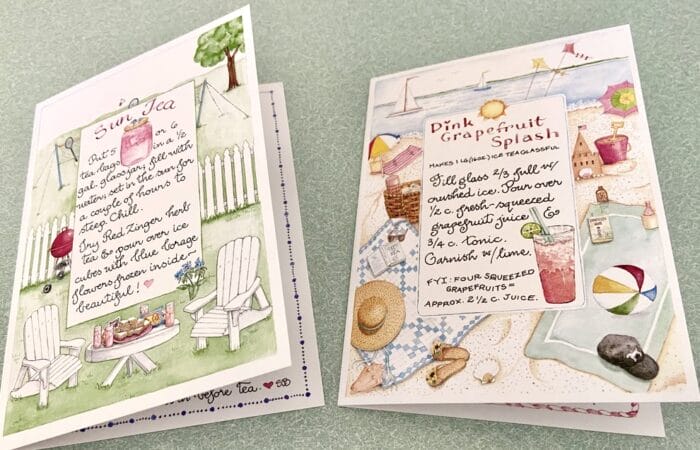 Sun Tea
Put 5 or 6
tea bags in a 1/2
gal. glass jar; fill with
water; set in the sun for
a couple of hours to
steep. Chill.
Try Red Zinger herb
tea & pour over ice
cubes with blue borage
flowers frozen inside~
beautiful! ♥
before tea. ♥
Pink
Grapefruit
Splash
MAKES 1 LG. (16oz.) ICE TEA GLASSFUL
Fill glass 2/3 full w/
crushed ice. Pour over
1/2 c. fresh-squeezed
grapefruit juice &
3/4 c. tonic.
Garnish w/lime.
FYI: FOUR SQUEEZED
GRAPEFRUITS =
APPROX. 2 1/2 C. JUICE.